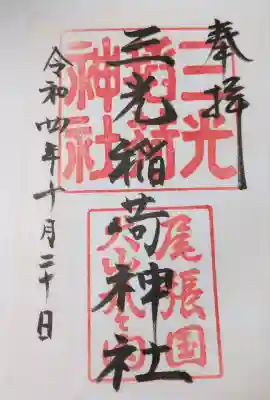 奉拝
三光稲荷神社
令和四年十月二十日
三光
稲荷
神社
尾張国